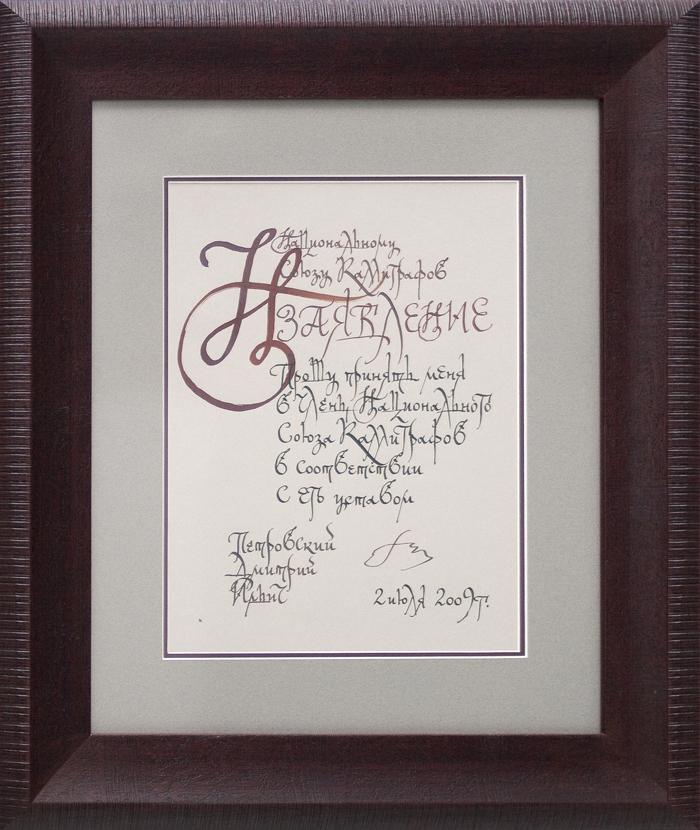 Национальному
Союзу Каллиграфов
ЗАЯВЛЕНИЕ
Прошу принять меня
в члены Национального
Союза Каллиграфов
в соответствии
с его уставом
Петровский
Дмитрий
Ильич
2 июля 2009 г.